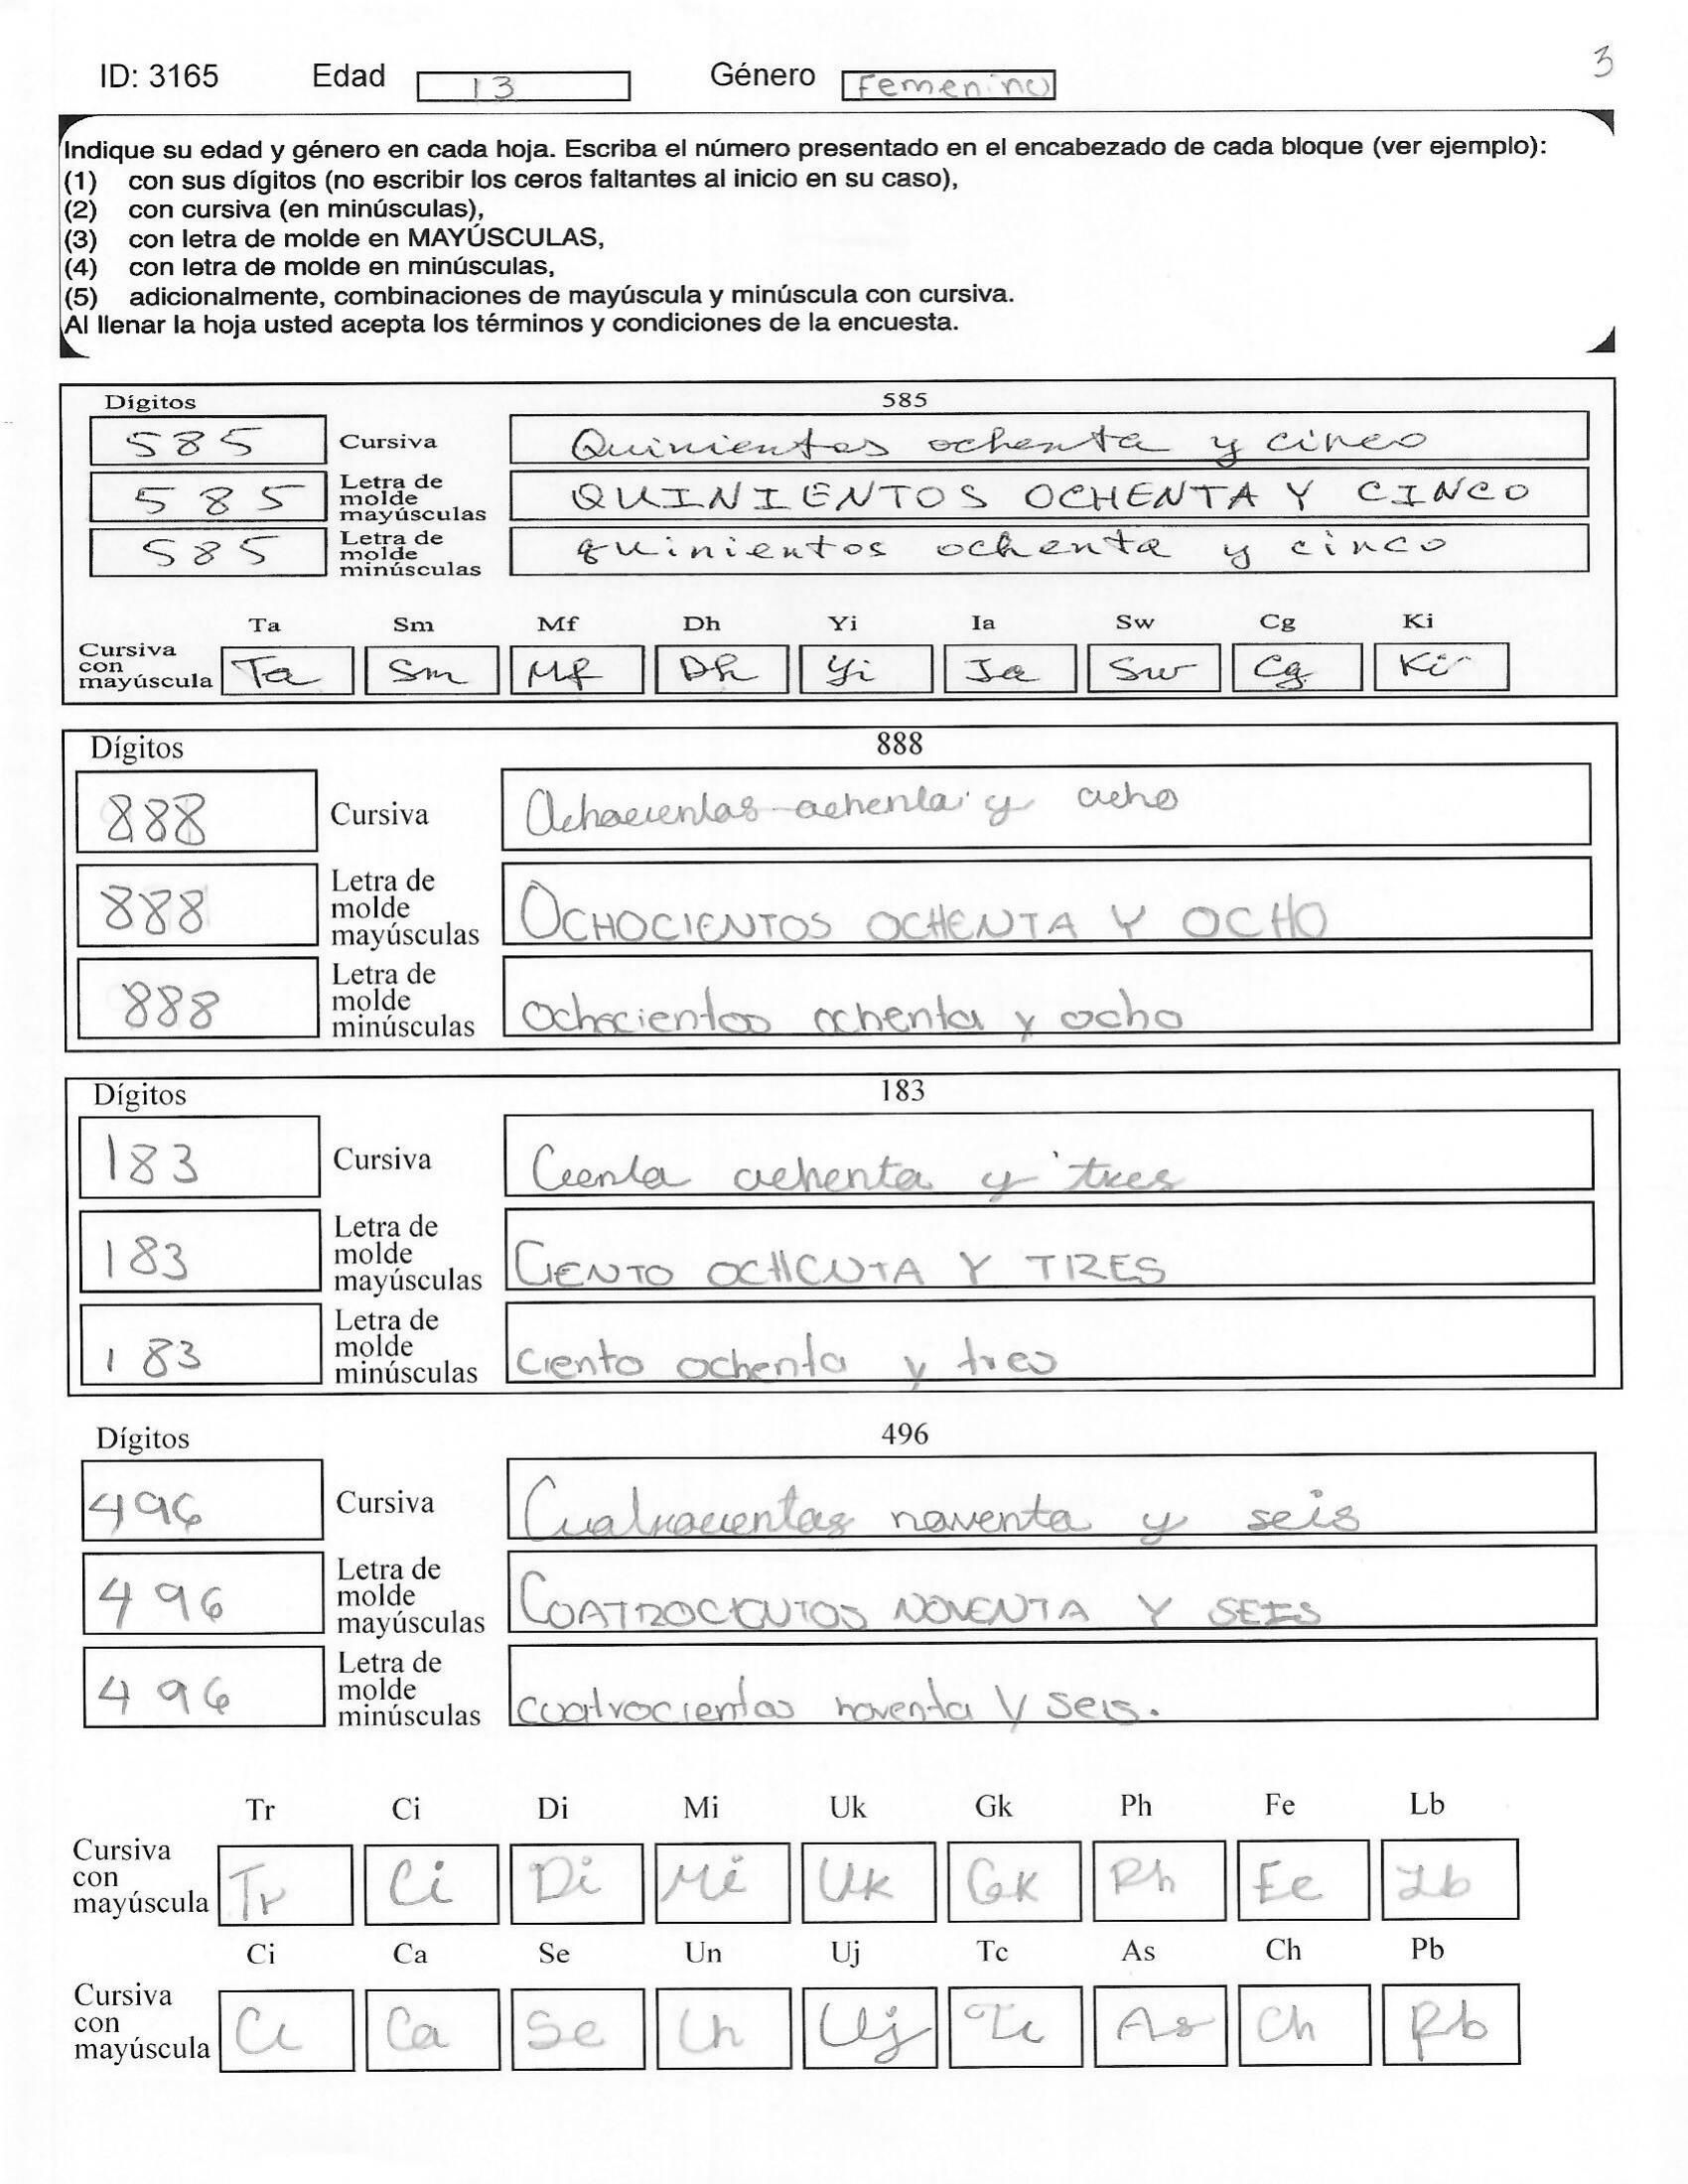 3
ID: 3165 Edad 13 Género Femenino
Indique su edad y género en cada hoja. Escriba el número presentado en el encabezado de cada bloque (ver ejemplo):
(1) con sus dígitos (no escribir los ceros faltantes al inicio en su caso),
(2) con cursiva (en minúsculas),
(3) con letra de molde en MAYÚSCULAS,
(4) con letra de molde en minúsculas,
(5) adicionalmente, combinaciones de mayúscula y minúscula con cursiva.
Al llenar la hoja usted acepta los términos y condiciones de la encuesta.
Dígitos 585
585 Cursiva Quinientos ochenta y cinco
585 Letra de molde mayúsculas QUINIENTOS OCHENTA Y CINCO
585 Letra de molde minúsculas quinientos ochenta y cinco
Ta Sm Mf Dh Yi Ia Sw Cg Ki
Cursiva con mayúscula Ta Sm Mf Dh Yi Ia Sw Cg Ki
Dígitos 888
888 Cursiva Ochocientos ochenta y ocho
888 Letra de molde mayúsculas OCHOCIENTOS OCHENTA Y OCHO
888 Letra de molde minúsculas ochocientos ochenta y ocho
Dígitos 183
183 Cursiva Ciento ochenta y tres
183 Letra de molde mayúsculas CIENTO OCHENTA Y TRES
183 Letra de molde minúsculas ciento ochenta y tres
Dígitos 496
496 Cursiva Cuatrocientos noventa y seis
496 Letra de molde mayúsculas COATROCIENTOS NOVENTA Y SEIS
496 Letra de molde minúsculas cuatrocientos noventa y seis.
Tr Ci Di Mi Uk Gk Ph Fe Lb
Cursiva con mayúscula Tr Ci Di Mi Uk Gk Ph Fe Lb
Ci Ca Se Un Uj Tc As Ch Pb
Cursiva con mayúscula Ci Ca Se Un Uj Tc As Ch Pb